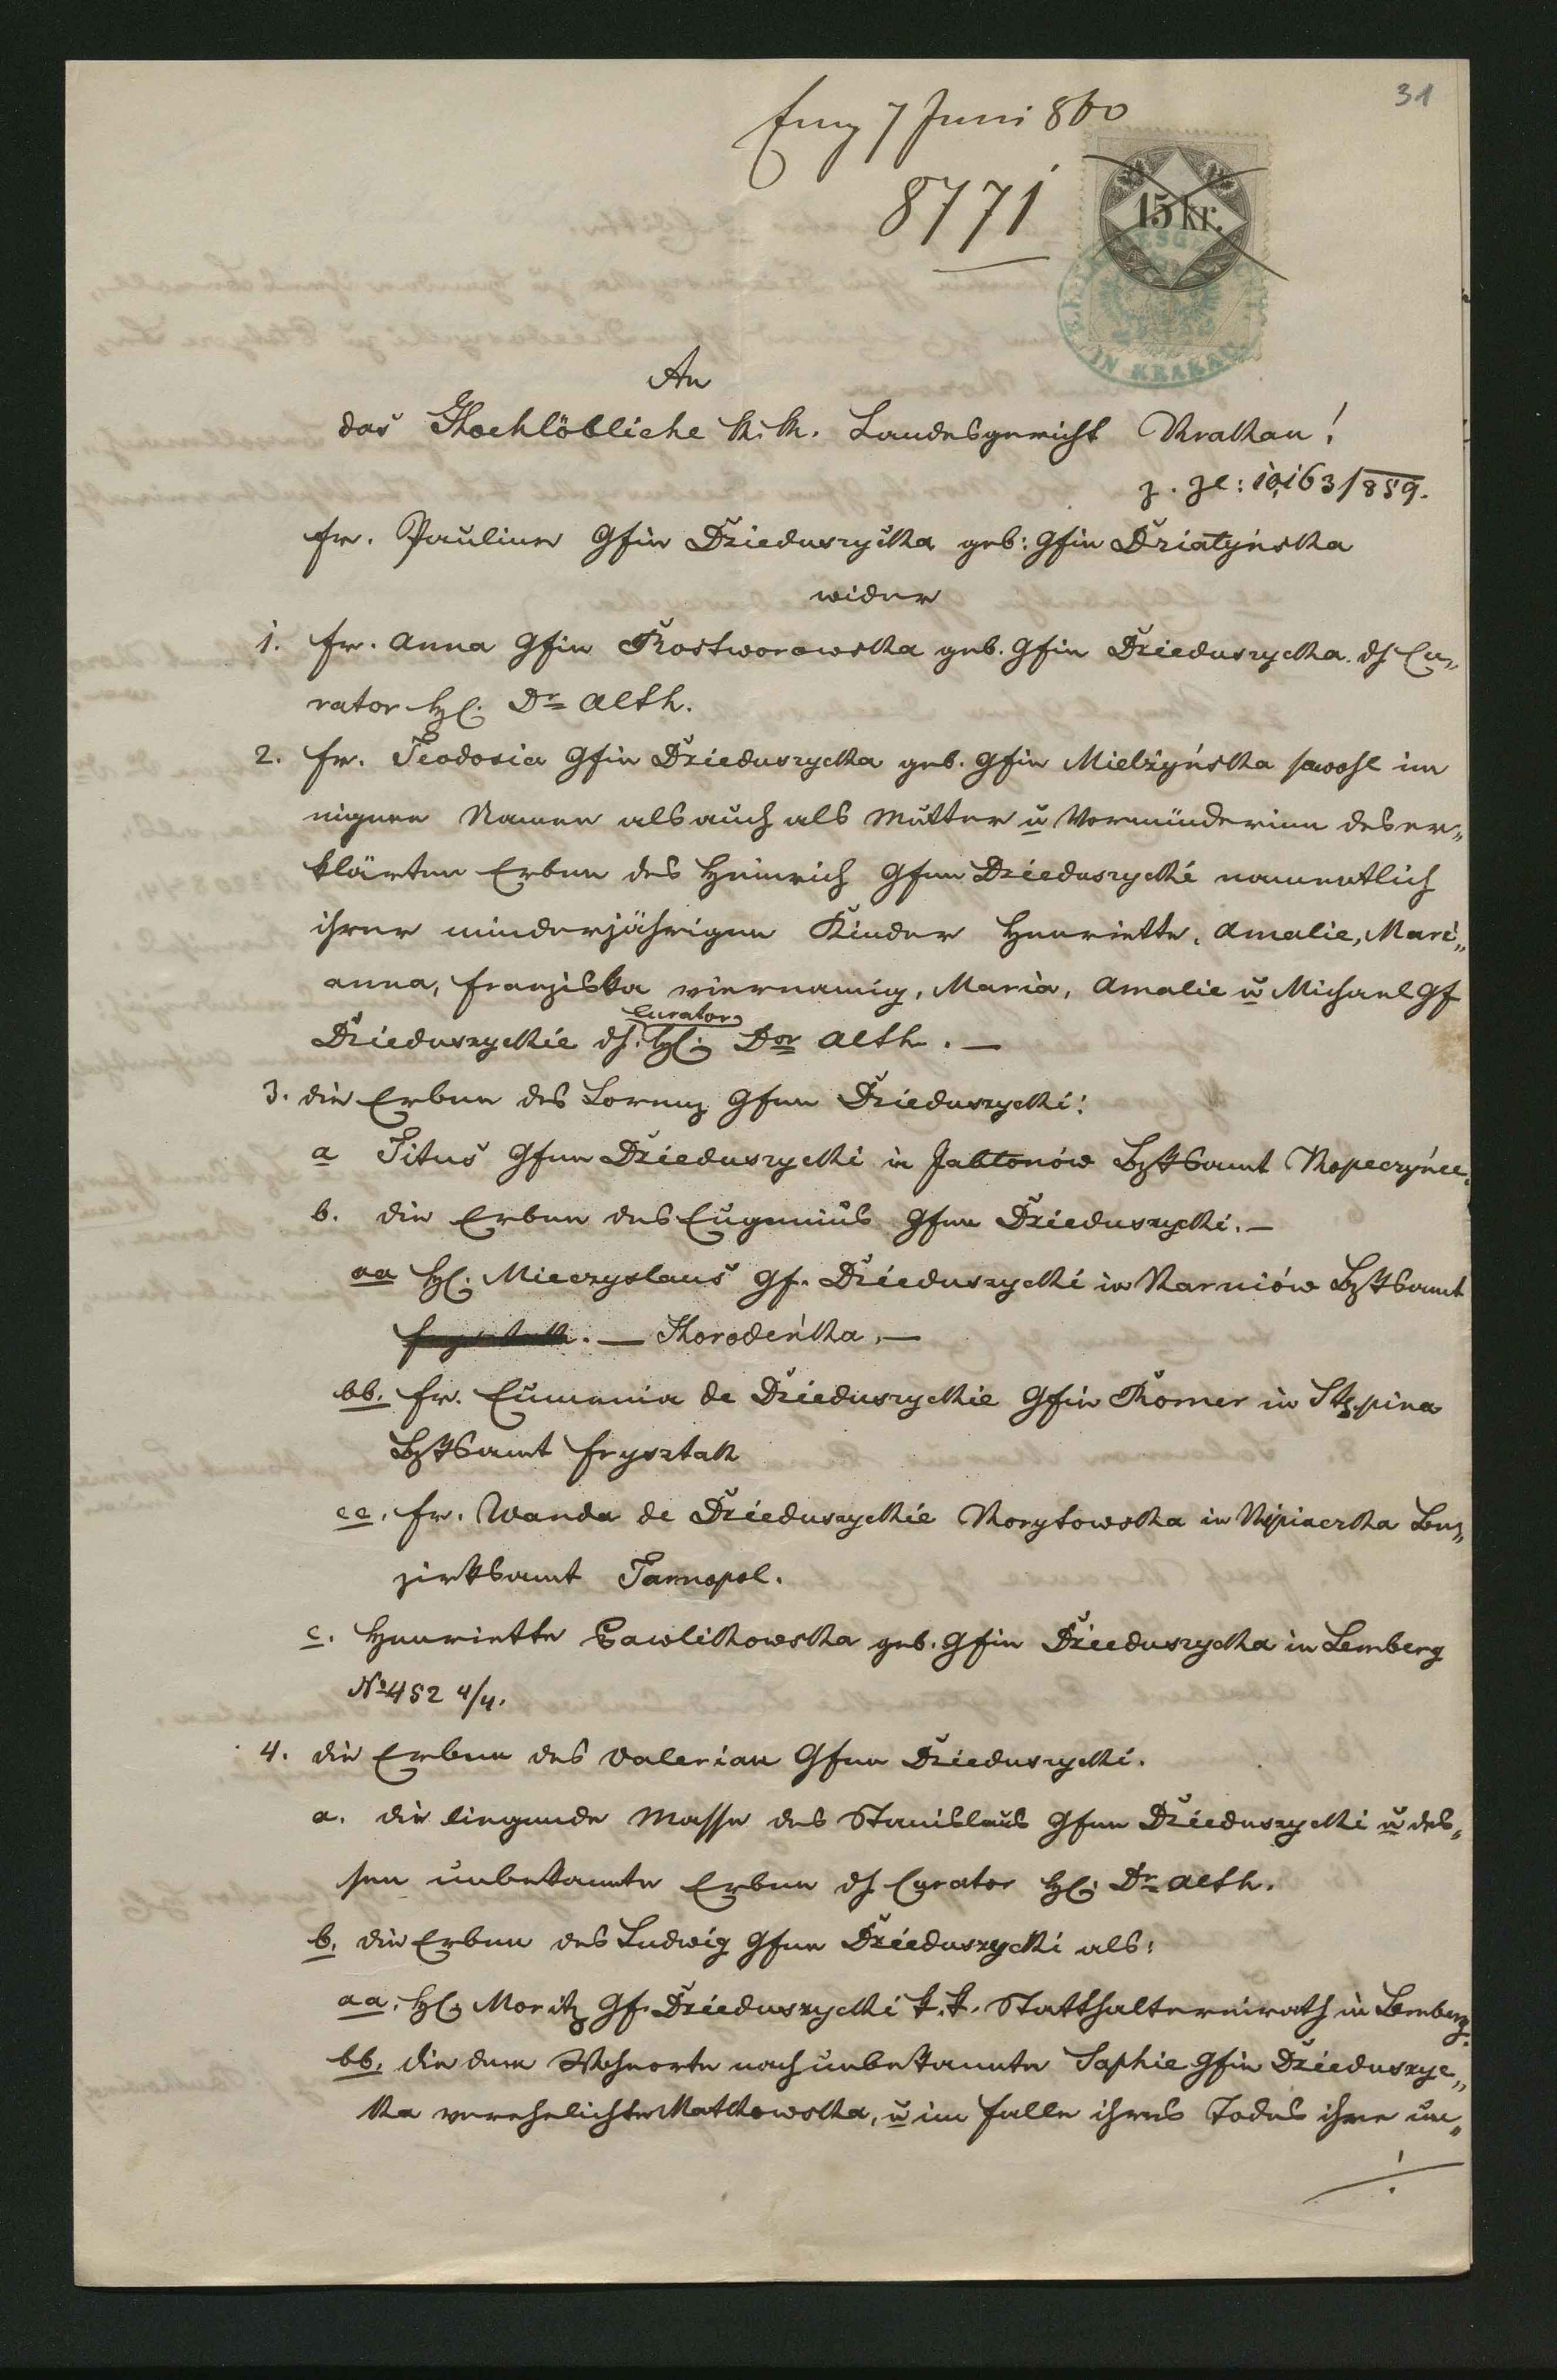 31
Eing 7 Juni 860
8771
15 kr.
K. K. LANDESGERICHT
IN KRAKAU
An
das Hochlöbliche K. K. Landesgericht Krakau!
z. Zl: 10,163/859.
Fr. Pauline Gfin Dzieduszycka geb: Gfin Działyńska
wider
1. Fr. Anna Gfin Rostworowska geb. Gfin Dzieduszycka dh Cu„
rator H. Dr Alth.
2. Fr. Teodosia Gfin Dzieduszycka geb. Gfin Mielżyńska sowohl im
eigenen Namen als auch als Mutter u Vormünderinn der er„
klärten Erben des Heinrich Gfen Dzieduszycki namentlich
ihrer minderjährigen Kinder Henriette, Amalie, Mari„
anna, Franziska viernamig, Maria, Amalie u Michael Gf
Curator
Dzieduszyckie dh. H. Dor Alth. —
3. die Erben des Lorenz Gfen Dzieduszycki:
a Titus Gfen Dzieduszycki in Jabłonów Bzktsamt Kopeczyńce.
b. die Erben des Eugenius Gfen Dzieduszycki. —
aa H. Mieczyslaus Gf. Dzieduszycki in Karniów Bzktsamt
— Horodeńka, —
bb. Fr. Eumenia de Dzieduszyckie Gfin Romer in Stępina
Bzktsamt Frysztak
cc. Fr. Wanda de Dzieduszyckie Korytowska in Kipiaczka Be„
zirksamt Tarnopol.
c. Henriette Pawlikowska geb. Gfin Dzieduszycka in Lemberg
No 452 4/4.
4. die Erben des Valerian Gfen Dzieduszycki.
a. die liegende Masse des Stanislaus Gfen Dzieduszycki u des„
sen unbekannte Erben dh Curator H. Dr Alth.
b. die Erben des Ludwig Gfen Dzieduszycki als:
aa. H. Moritz Gf. Dzieduszycki k. k. Statthaltereirath in Lemberg.
bb. die dem Wohnorte nach unbekannte Sophie Gfin Dzieduszyc„
ka verehelichte Matkowska, u im Falle ihres Todes ihre un„
./.